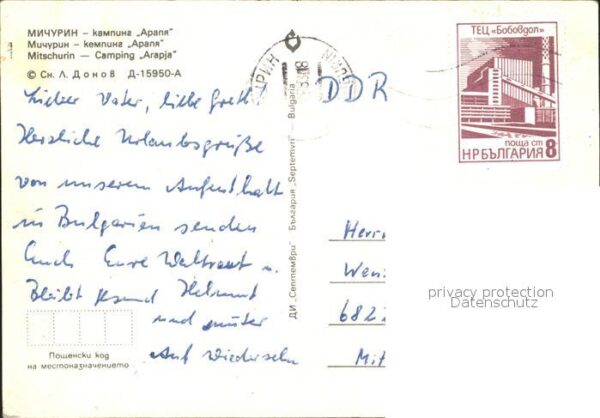 МИЧУРИН – кампинг „Арапя"
Мичурин – кемпинг „Арапя"
Mitschurin – Camping „Arapja"
© Сн. Л. Донов Д-15950-А
Lieber Vater, liebe Greth
Herzliche Urlaubsgrüße
von unserem Aufenthalt
in Bulgarien senden
Euch Eure Waltraut u.
Bleibt gesund Helmut
und
Auf Wiedersehn
Пощенски код
на местоназначението
ДИ „Септември" България „Septemvri" – Bulgaria
DDR
ТЕЦ „Бобовдол"
поща ст
НРБЪЛГАРИЯ 8
Herrn
682
privacy protection
Datenschutz